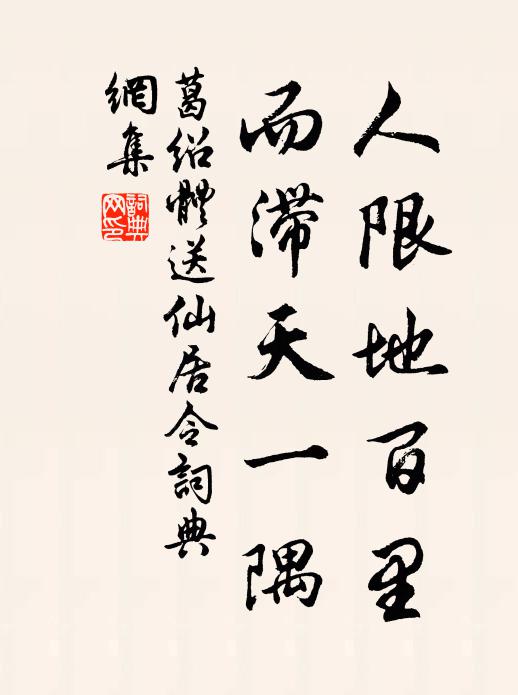 人限地百里
而滞天一隅
葛绍體送仙居令詞典
網集
詞典
网印